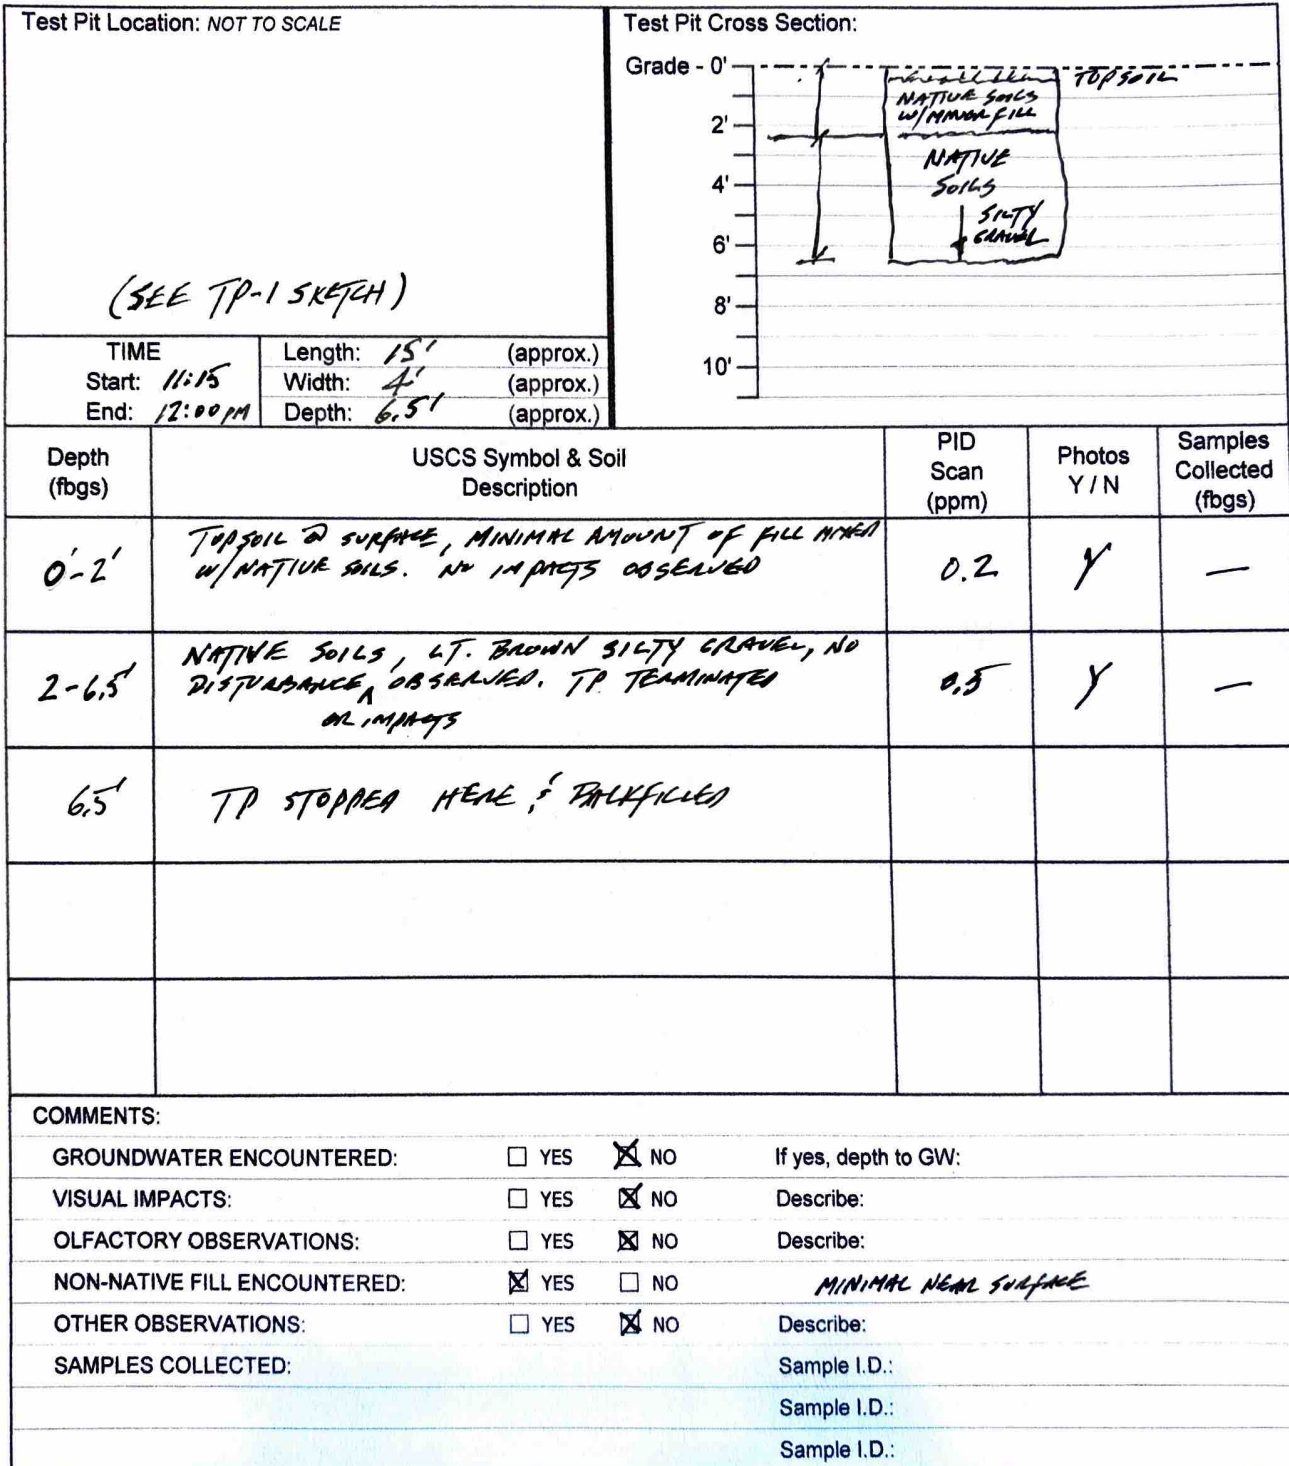 Test Pit Location: NOT TO SCALE
(SEE TP-1 SKETCH)
Test Pit Cross Section:
Grade - 0'
2'
4'
6'
8'
10'
TOPSOIL
NATIVE SOILS
W/MINOR FILL
NATIVE
SOILS
SILTY
GRAVEL
TIME
Start: 11:15
End: 12:00 PM
Length: 15' (approx.)
Width: 4' (approx.)
Depth: 6.5' (approx.)
Depth
(fbgs)
USCS Symbol & Soil
Description
PID
Scan
(ppm)
Photos
Y / N
Samples
Collected
(fbgs)
0'-2'
TOPSOIL @ SURFACE, MINIMAL AMOUNT OF FILL MIXED
W/NATIVE SOILS. NO IMPACTS OBSERVED
0.2
Y
—
2-6.5'
NATIVE SOILS, LT. BROWN SILTY GRAVEL, NO
DISTURBANCE ^ OBSERVED. TP TERMINATED
OR IMPACTS
0.5
Y
—
6.5'
TP STOPPED HERE & BACKFILLED
COMMENTS:
GROUNDWATER ENCOUNTERED: ☐ YES ☒ NO If yes, depth to GW:
VISUAL IMPACTS: ☐ YES ☒ NO Describe:
OLFACTORY OBSERVATIONS: ☐ YES ☒ NO Describe:
NON-NATIVE FILL ENCOUNTERED: ☒ YES ☐ NO MINIMAL NEAR SURFACE
OTHER OBSERVATIONS: ☐ YES ☒ NO Describe:
SAMPLES COLLECTED: Sample I.D.:
Sample I.D.:
Sample I.D.: